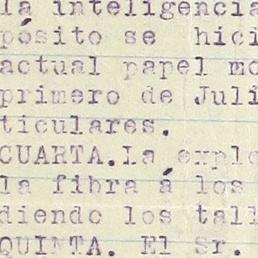 la inteligencia
pósito se hici
actual papel mo
primero de Juli
ticulares.
CUARTA.La explo
la fibra á los
diendo los tall
QUINTA. El Sr.